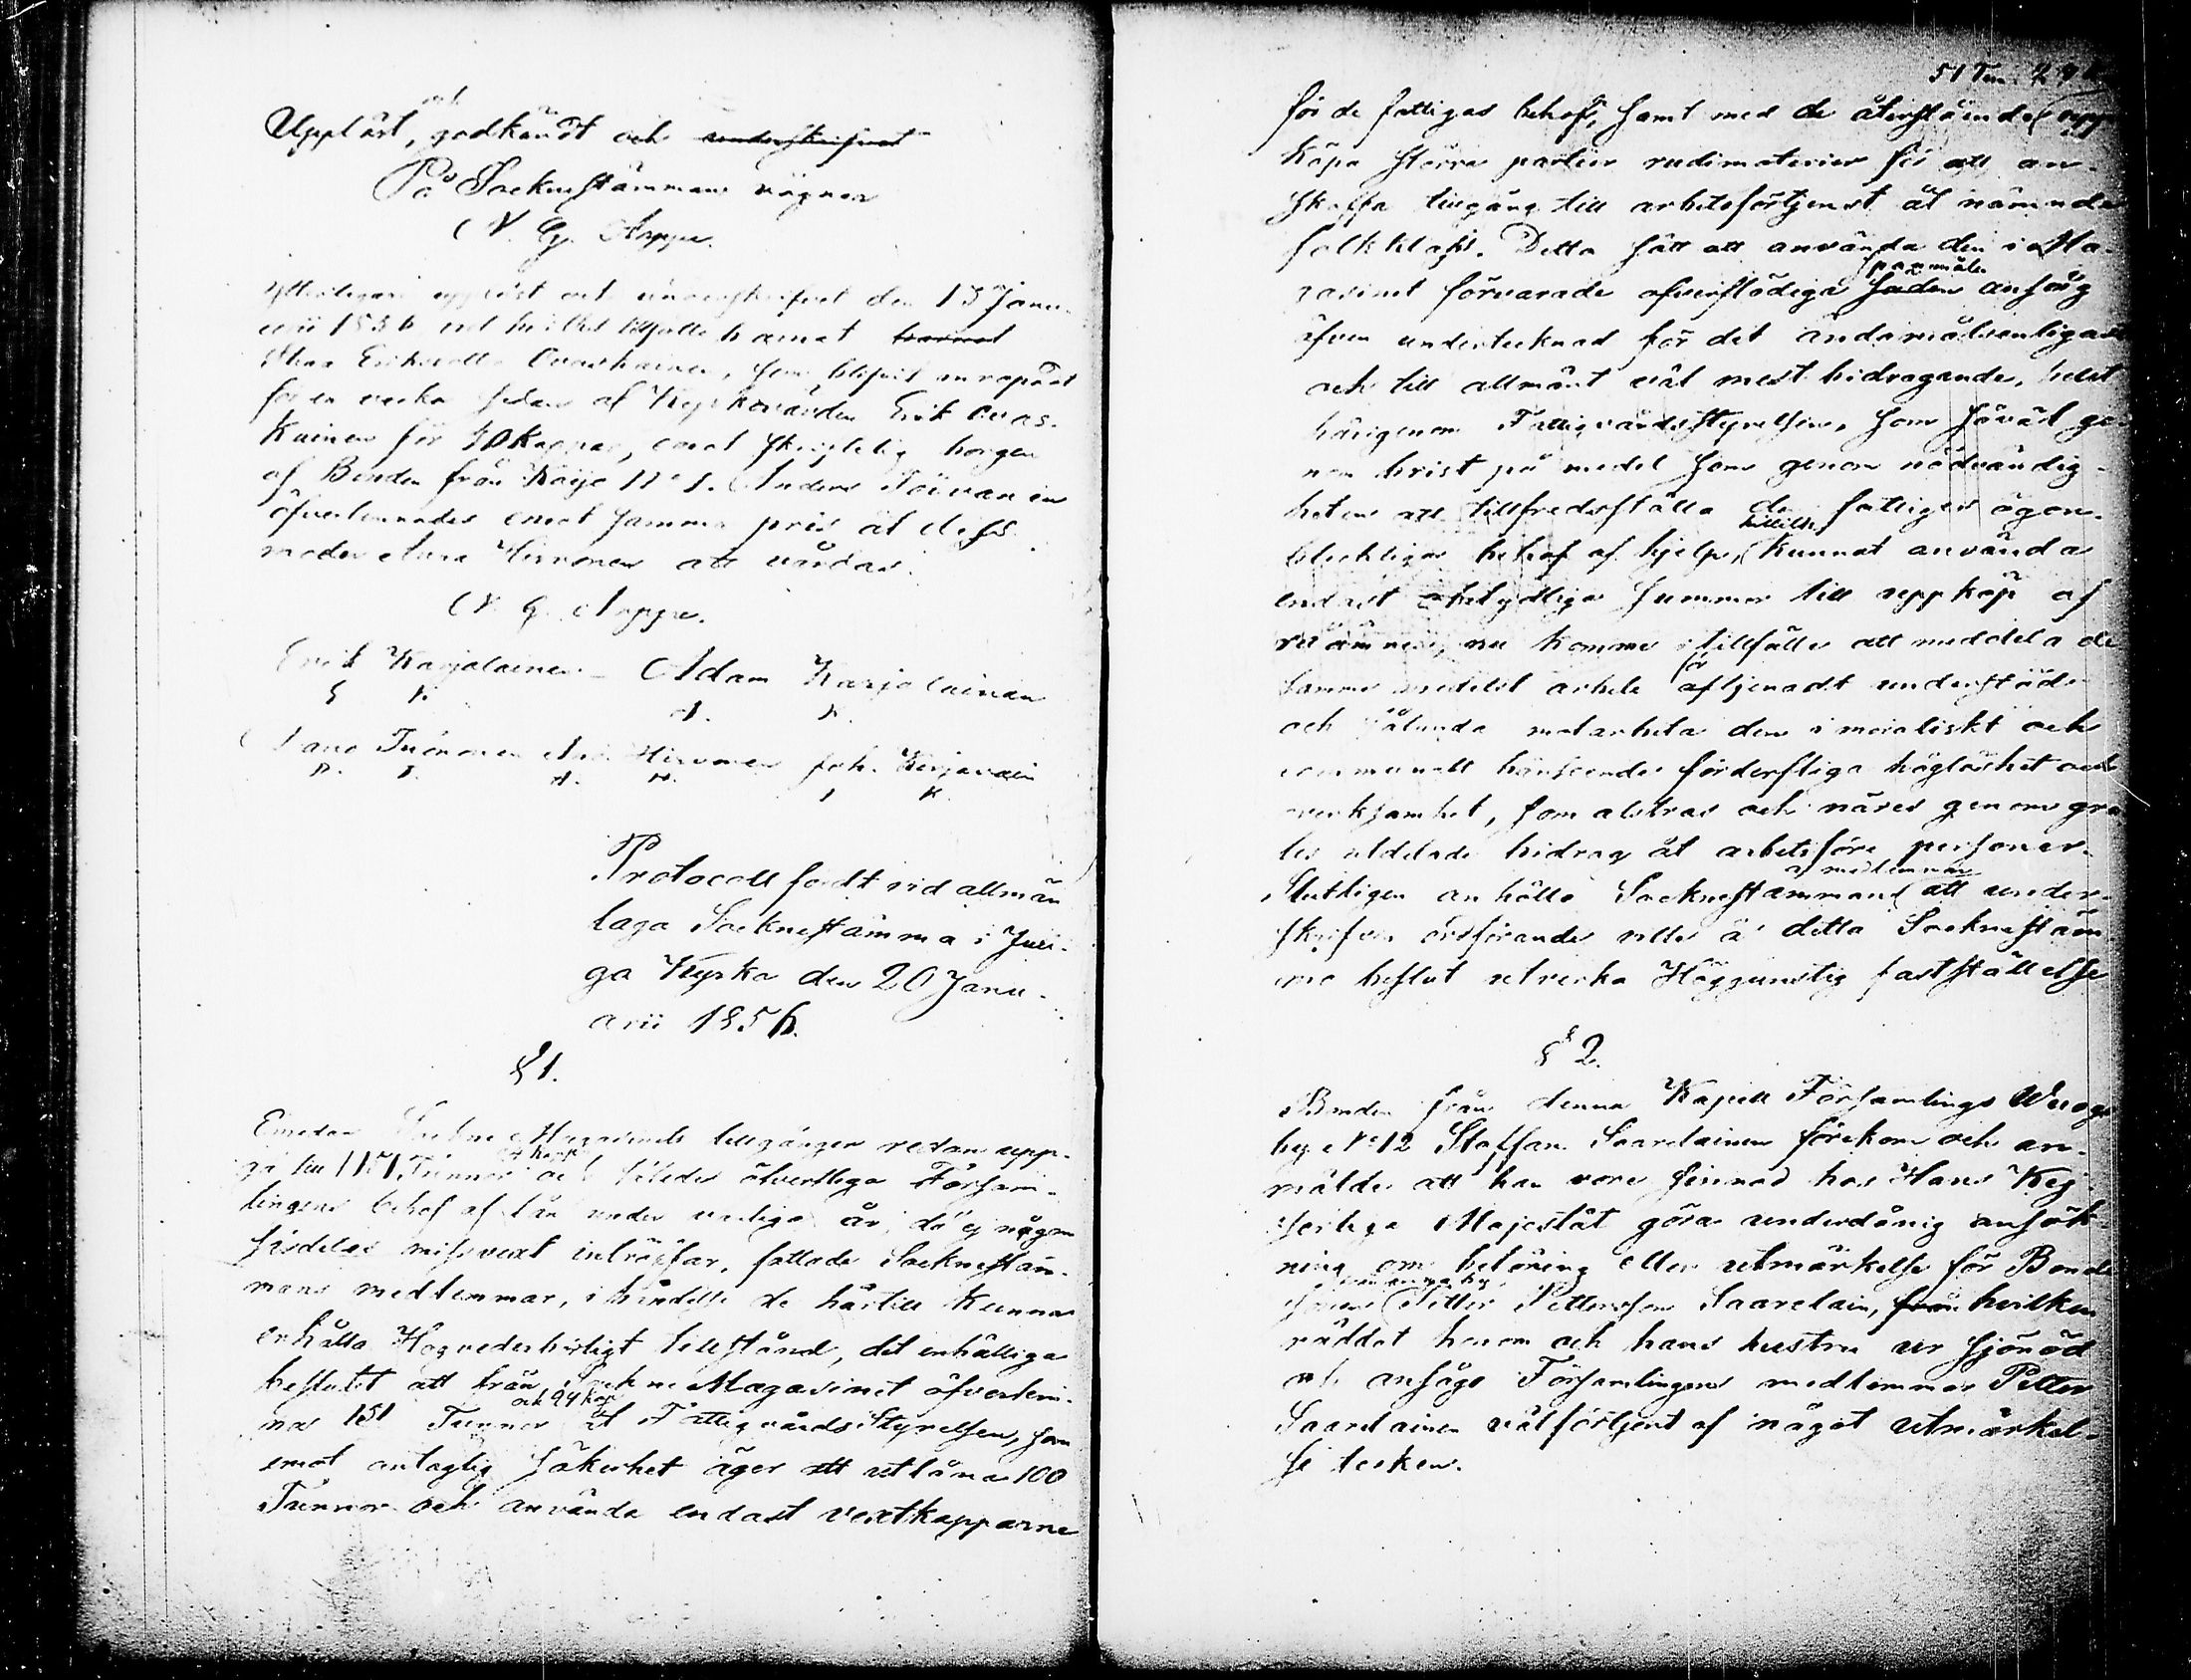 Uppläst, godkändt och underskrifvet
På Sockneståmmans vägnar
N. G. Arppe.
Ytterligare uppläst och underskrifvet den 13 Janu-
arii 1856 vid hvilket tillfälle barnet barnet
Kuinen för 30 Kappar, emot skriftelig borgen
af Bonden från Koijo No 1. Anders Toivanen
öfverlemnades emot samma pris åt dess
moder Anna Hirvonen att vårdas.
N. G. Arppe.
Erik Karjalainen Adam Karjalainen
E K. A. K.
Tuononen Hirvonen Joh. Kirjavain
P. T. A. H. J K.
Protocoll fördt vid allmän
laga Socknestämma i Juu-
ga Kyrka den 20 Janu-
arii 1856.
§ 1.
Emedan Sockne Magasinets tillgångar redan upp-
gå till 1151 Tunnor och således öfverstiga Försam-
lingens behof af lån under vanliga år, då ej någon
synnerlig missvext inträffar, fattade Socknestäm-
mans medlemmar, i händelse de härtill kunna
erhålla Högvederbörligt tillstånd, det enhälliga
beslutet att från Sockne Magasinet öfverlem-
och 24 kap
na 151 Tunnor åt Fattigvårds Styrelsen, som
emot antaglig säkerhet äger att utlåna 100
Tunnor och använda endast vextkapparne
51 Tun. 24 k
för de fattigas behof, samt med de återstående upp-
köpa större partier rudimaterier för att an-
skaffa tillgång till arbetsförtjenst åt nämnde
folkklass. Detta sätt att använda den i Ma-
spanmålen
gasinet förvarade öfverflödiga säden ansåg
äfven undertecknad för det ändamålsenligaste
och till allmänt väl mest bidragande, helst
härigenom Fattigvårdsstyrelsen, som såväl ge-
nom brist på medel som genom nödvändig-
heten att tillfredsställa de fattigas ögon-
hittills
blickliga behof af hjelp, kunnat använda
endast obetydliga summor till uppköp af
råämnen, nu kommer i tillfälle att meddela de-
för
samma medelst arbete aftjenadt understöd
och sålunda motarbeta den i moraliskt och
communalt hänseende förderfliga håglöshet och
overksamhet, som alstras och näres genom gra-
tis utdelade bidrag åt arbetsföre personer.
medlemmar
Slutligen anhöllo Socknestämmans att under-
skrifven ordförande ville å detta Socknestäm-
mo beslut utverka Höggunstig fastställelse
§ 2.
Bonden från denna Kapell Församlings Wuoge
by No 12 Staffan Saarelainen förekom och an-
mälde att han vore sinnad hos Hans Kej-
serliga Majestät göra underdånig ansök-
ning om belöning eller utmärkelse för Bonde
sonen Petter Pettersson Saarelain, från hvilken
räddat honom och hans hustru ur sjönöd
och ansågo Församlingens medlemmar Petter
Saarelainen välförtjent af något utmärkel-
se tecken.